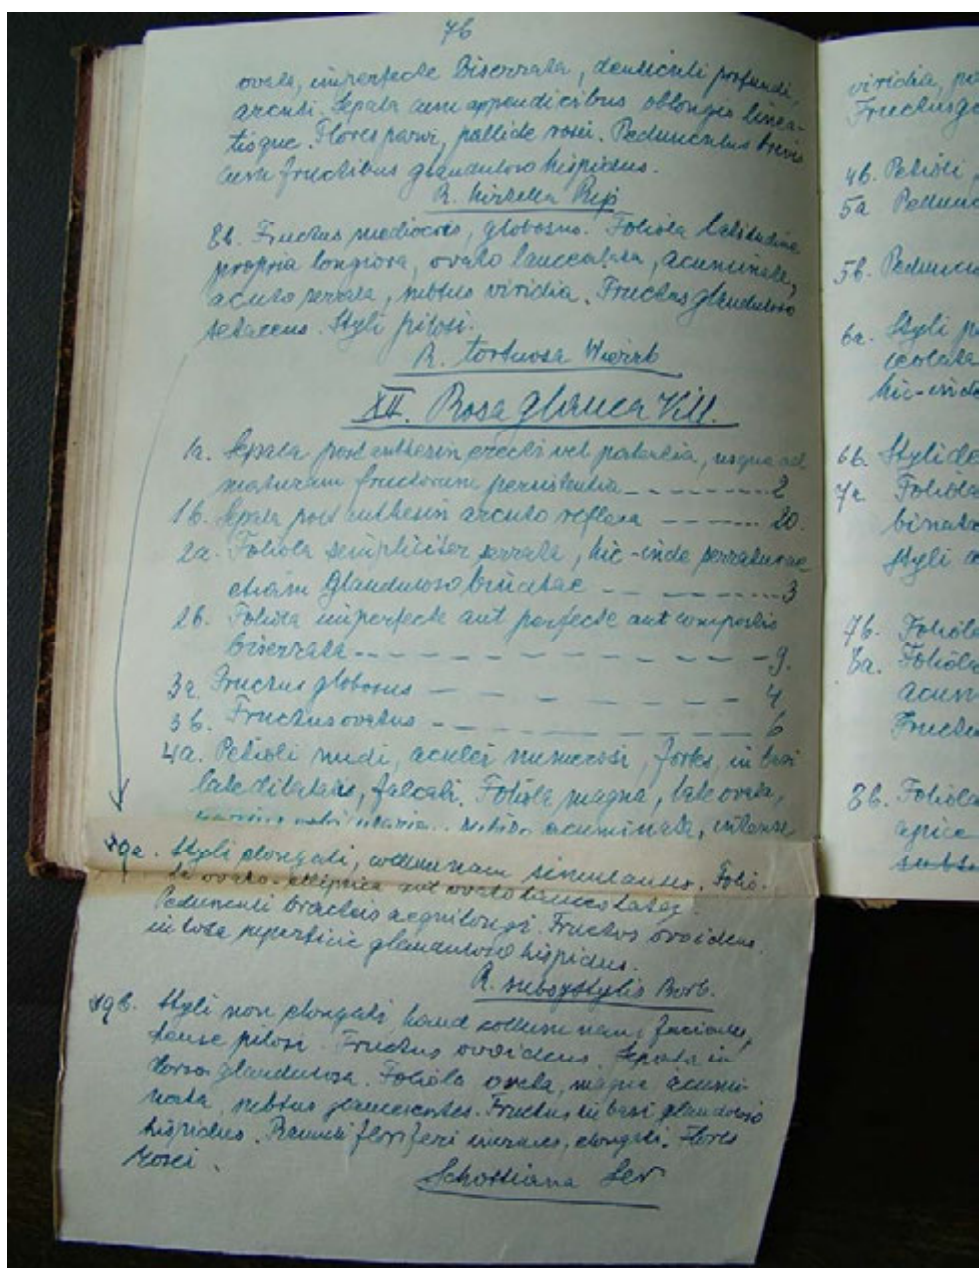 76
ovata, imperfecte biserrata, denticuli profundi,
arcuti. Sepala cum appendicibus oblongis linea-
tisque. Flores parvi, pallide rosei. Pedunculus brevis
cum fructibus glanduloso hispidus.
R. hirtella Rip
8b. Fructus mediocris, globosus. Foliola latitudine
propria longiora, ovato lanceolata, acuminata,
acuto serrata, subtus viridia. Fructus glanduloso
setaceus. Styli pilosi.
R. tortuosa Wierzb
XII. Rosa glauca Vill.
1a. Sepala post anthesin erecta vel patentia, usque ad
maturam fructorum persistentia 2
1b. Sepala post anthesin arcuto reflexa 20.
2a. Foliola simpliciter serrata, hic-inde serraturae
etiam glanduloso binatae 3
2b. Foliola imperfecte aut perfecte aut composite
biserrata 9.
3a. Fructus globosus 4
3b. Fructus ovatus 6
4a. Petioli nudi, aculei numerosi, fortes, in basi
late dilatatis, falcati. Foliola magna, late ovata,
acuminata, intense
9a. Styli elongati, columnam simulantes. Folio-
la ovato-elliptica aut ovato lanceolata.
Pedunculi bracteis aequilongi. Fructus ovoideus
in tota superficie glanduloso hispidus.
R. subsystylis Borb.
9b. Styli non elongati, haud columnam facientes,
dense pilosi. Fructus ovoideus. Sepala in
dorso glandulosa. Foliola ovata, magna acumi-
nata, subtus glaucescentes. Fructus in basi glanduloso
hispidus. Ramuli floriferi inermes, elongati. Flores
rosei.
Schottiana Ser
viridia,
Fructus
4b. Petioli
5a
5b.
6a. Styli
hic-inde
6b. Styli
7a. Foliola
Styli
7b. Foliola
8a. Foliola
8b. Foliola
apice